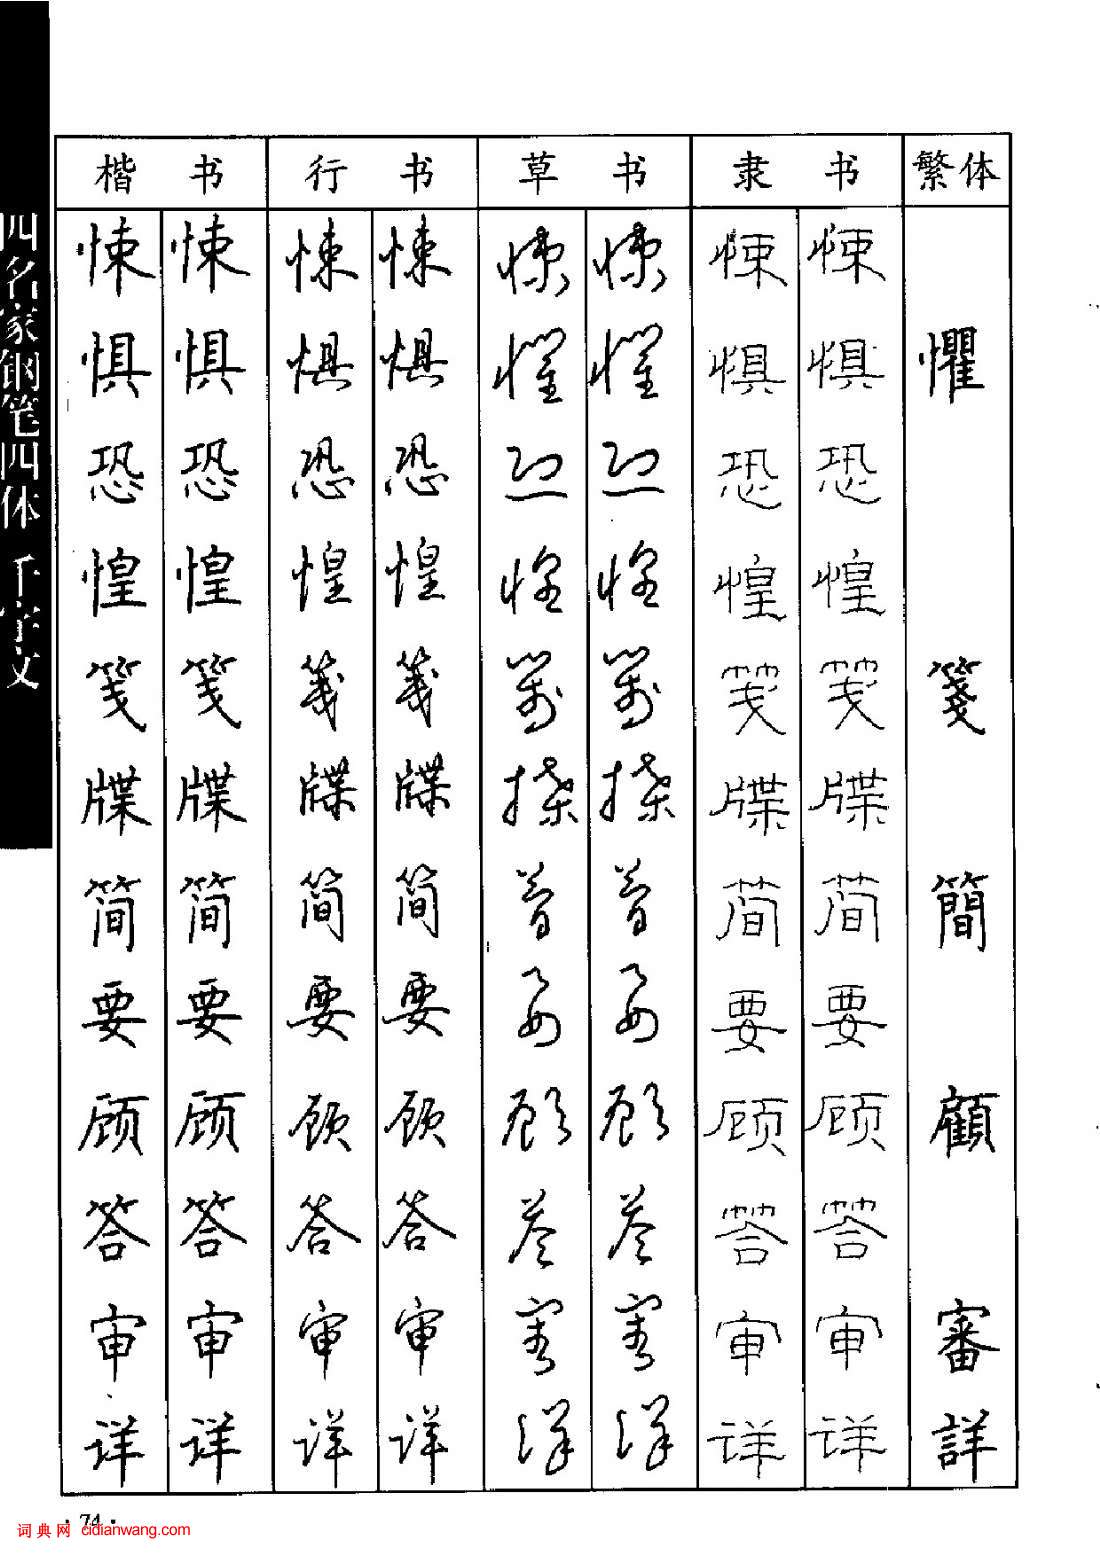 四名家钢笔四体 千字文
楷书 行书 草书 隶书 繁体
悚 悚 悚 悚 悚 悚 悚 悚
惧 惧 惧 惧 惧 惧 惧 惧 懼
恐 恐 恐 恐 恐 恐 恐 恐
惶 惶 惶 惶 惶 惶 惶 惶
笺 笺 笺 笺 笺 笺 笺 笺 箋
牒 牒 牒 牒 牒 牒 牒 牒
简 简 简 简 简 简 简 简 簡
要 要 要 要 要 要 要 要
顾 顾 顾 顾 顾 顾 顾 顾 顧
答 答 答 答 答 答 答 答
审 审 审 审 审 审 审 审 審
详 详 详 详 详 详 详 详 詳
·74·
词典网 cidianwang.com